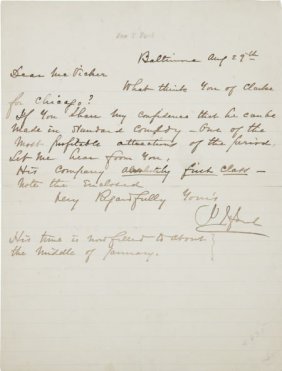 Baltimore Aug 29th
Dear McVicker
What think You of Clarke
for Chicago?
If You share my confidence that he can be
made in Standard Comedy - One of the
Most profitable attractions of the period.
Let me hear from You.
His Company absolutely first Class -
Note the Enclosed
Very Regardfully Yours
His time is now filled to about
the Middle of January.